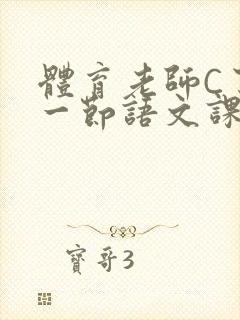 體育老師C
一節語文課
寶哥3